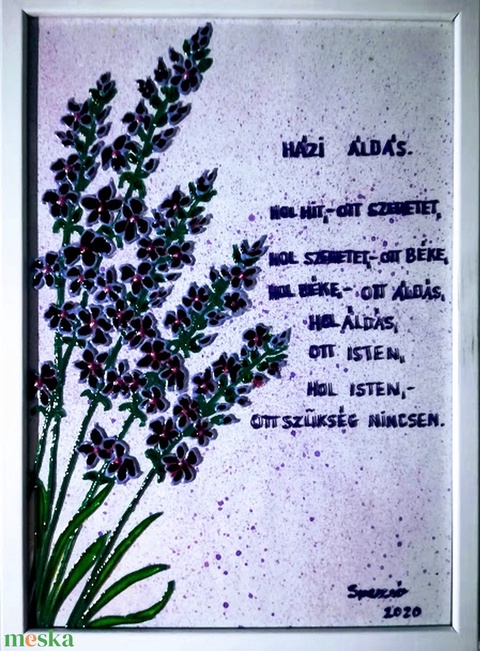 HÁZI ÁLDÁS.
HOL HIT,-OTT SZERETET,
HOL SZERETET,-OTT BÉKE,
HOL BÉKE,- OTT ÁLDÁS,
HOL ÁLDÁS,
OTT ISTEN,
HOL ISTEN,-
OTT SZÜKSÉG NINCSEN.
2020
meska